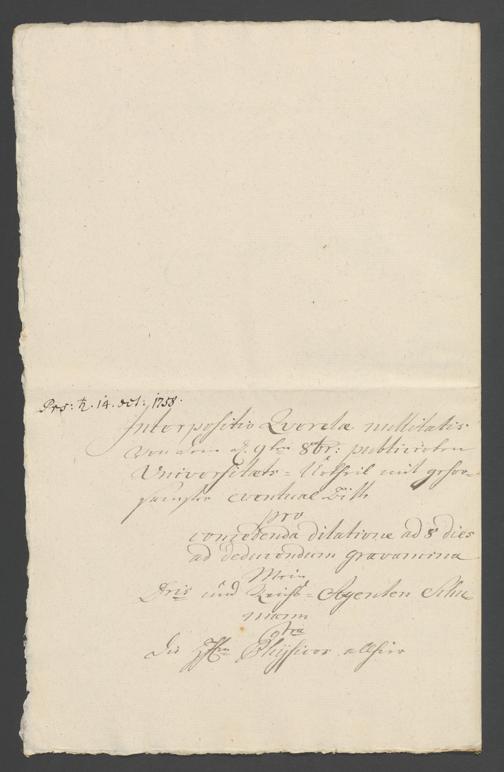 Prs: ♄. 14. oct: 1758.
Interpositio Querelae nullitatis
von dem d. 9ten 8br: publicirten
Universitæts-Urtheil mit gehor-
samster eventual Bitt
pro
concedenda dilatione ad 8 dies
ad deducendum gravamina
Mein
Dris und Reichs-Agenten Schu
mann
Cotra
Die Hhn Physicos allhier